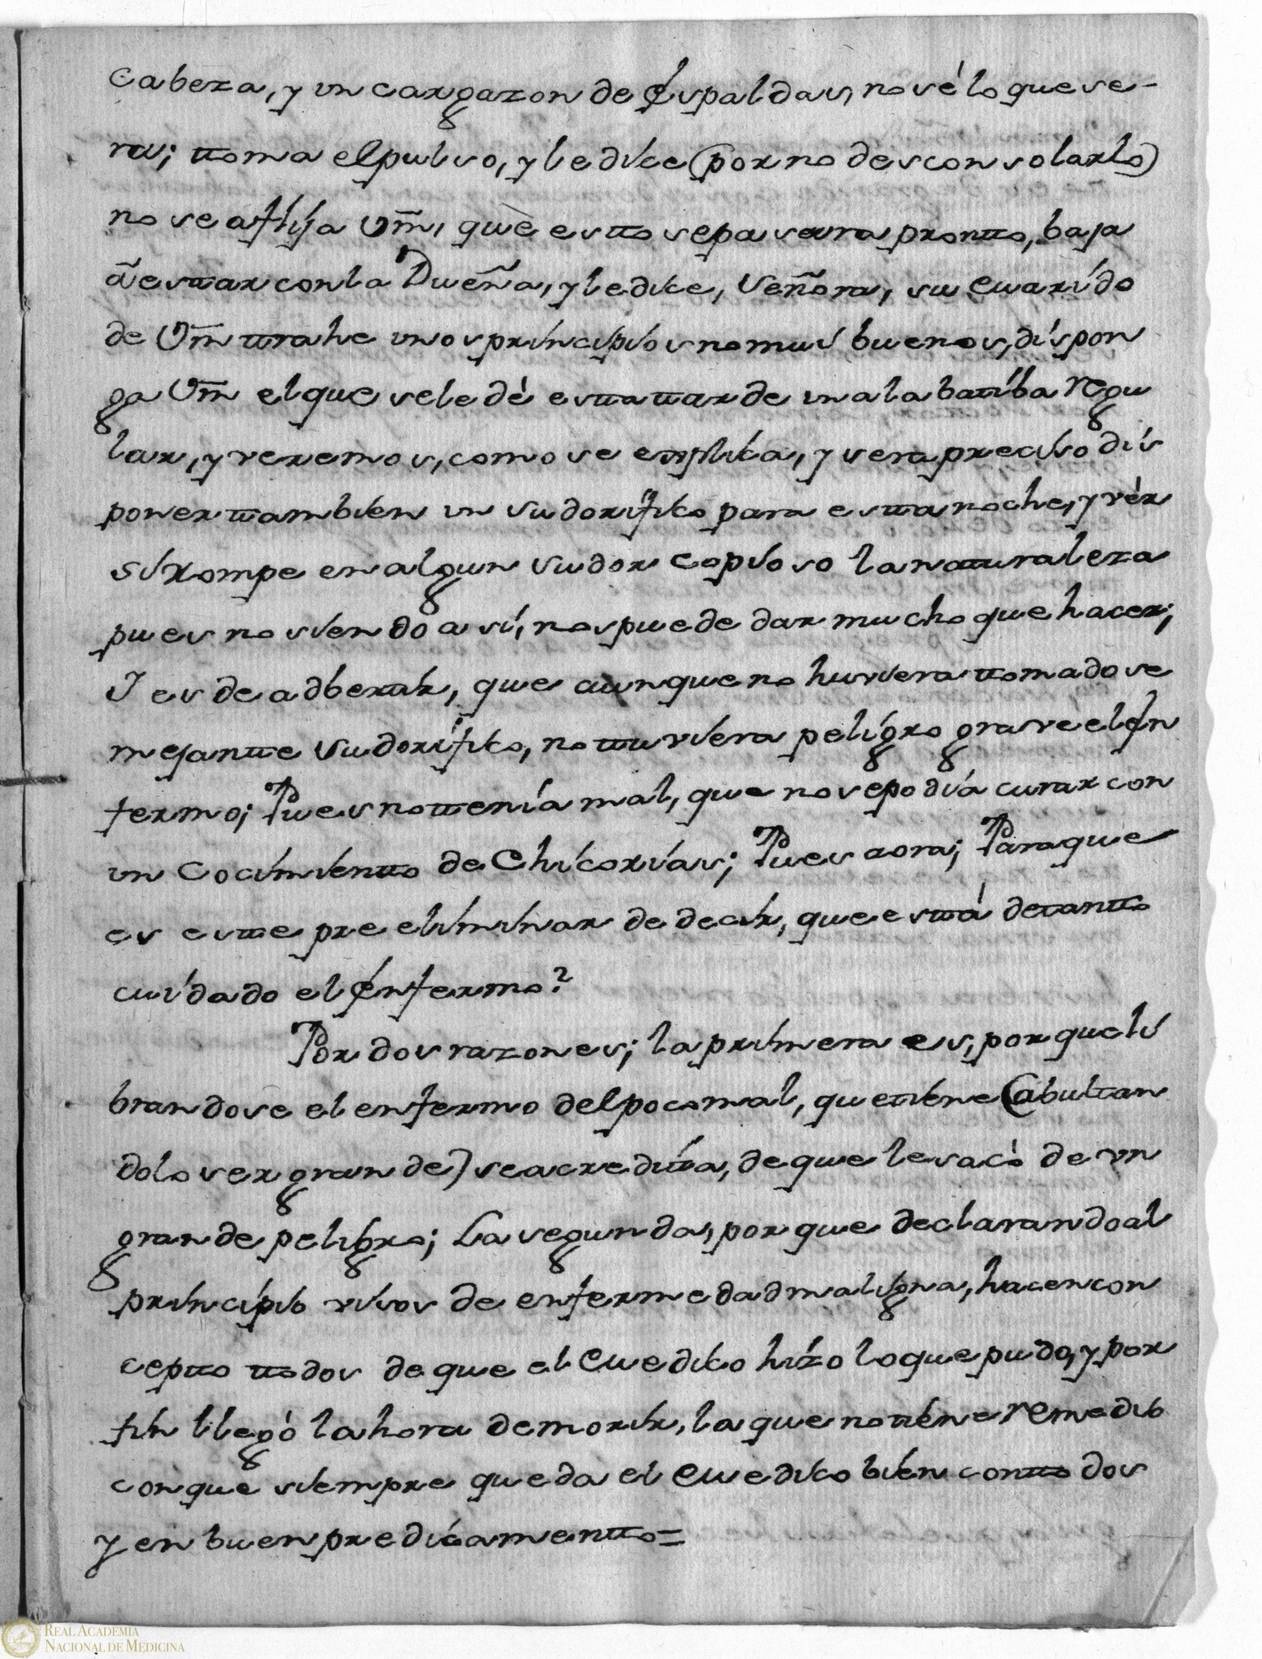 Cabeza, y un cargazon de Espaldas, no sé lo que se-
ra; ttoma el pulso, y le dice (por no desconsolarlo)
no se aflija Vm̃, què estto se pasara prontto, baja
à esttar con la Dueña, y le dice, Señora, su Marido
de Vm̃ ttrahe unos principios no mui buenos, dispon
ga Vm̃ el que se le dè esttattar de una labatiba regu
lar, y veremos, como se explica, y sera preciso dis
poner ttambien un sudorifico para estta noche, y vèr
si rompe en algun sudor copioso la natturaleza
pues no siendo asi, nos puede dar mucho que hacer;
I es de adbertir, que aunque no huviera ttomado se
mejantte sudorifico, no ttuviera peligro grave el En
fermo; Pues no ttenia mal, que no se podia curar con
un Cocimientto de Chicorias; Pues aora; Para que
es estte preeliminar de decir, que esttá de tantto
cuidado el Enfermo?
Por dos razones; la primera es, porque li
brandose el enfermo del poco mal, que tiene (abultan
dolo ser grande) se acreditta, de que le sacò de un
grande peligro; La segunda, porque declarando al
principio visos de enfermedad maligna, hacen con
ceptto ttodos de que el Medico hizo lo que pudo, y por
fin llegò la hora de morir, la que no tiene remedio
con que siempre queda el Medico bien con ttodos
y en buen predicamentto=
REAL ACADEMIA
NACIONAL DE MEDICINA